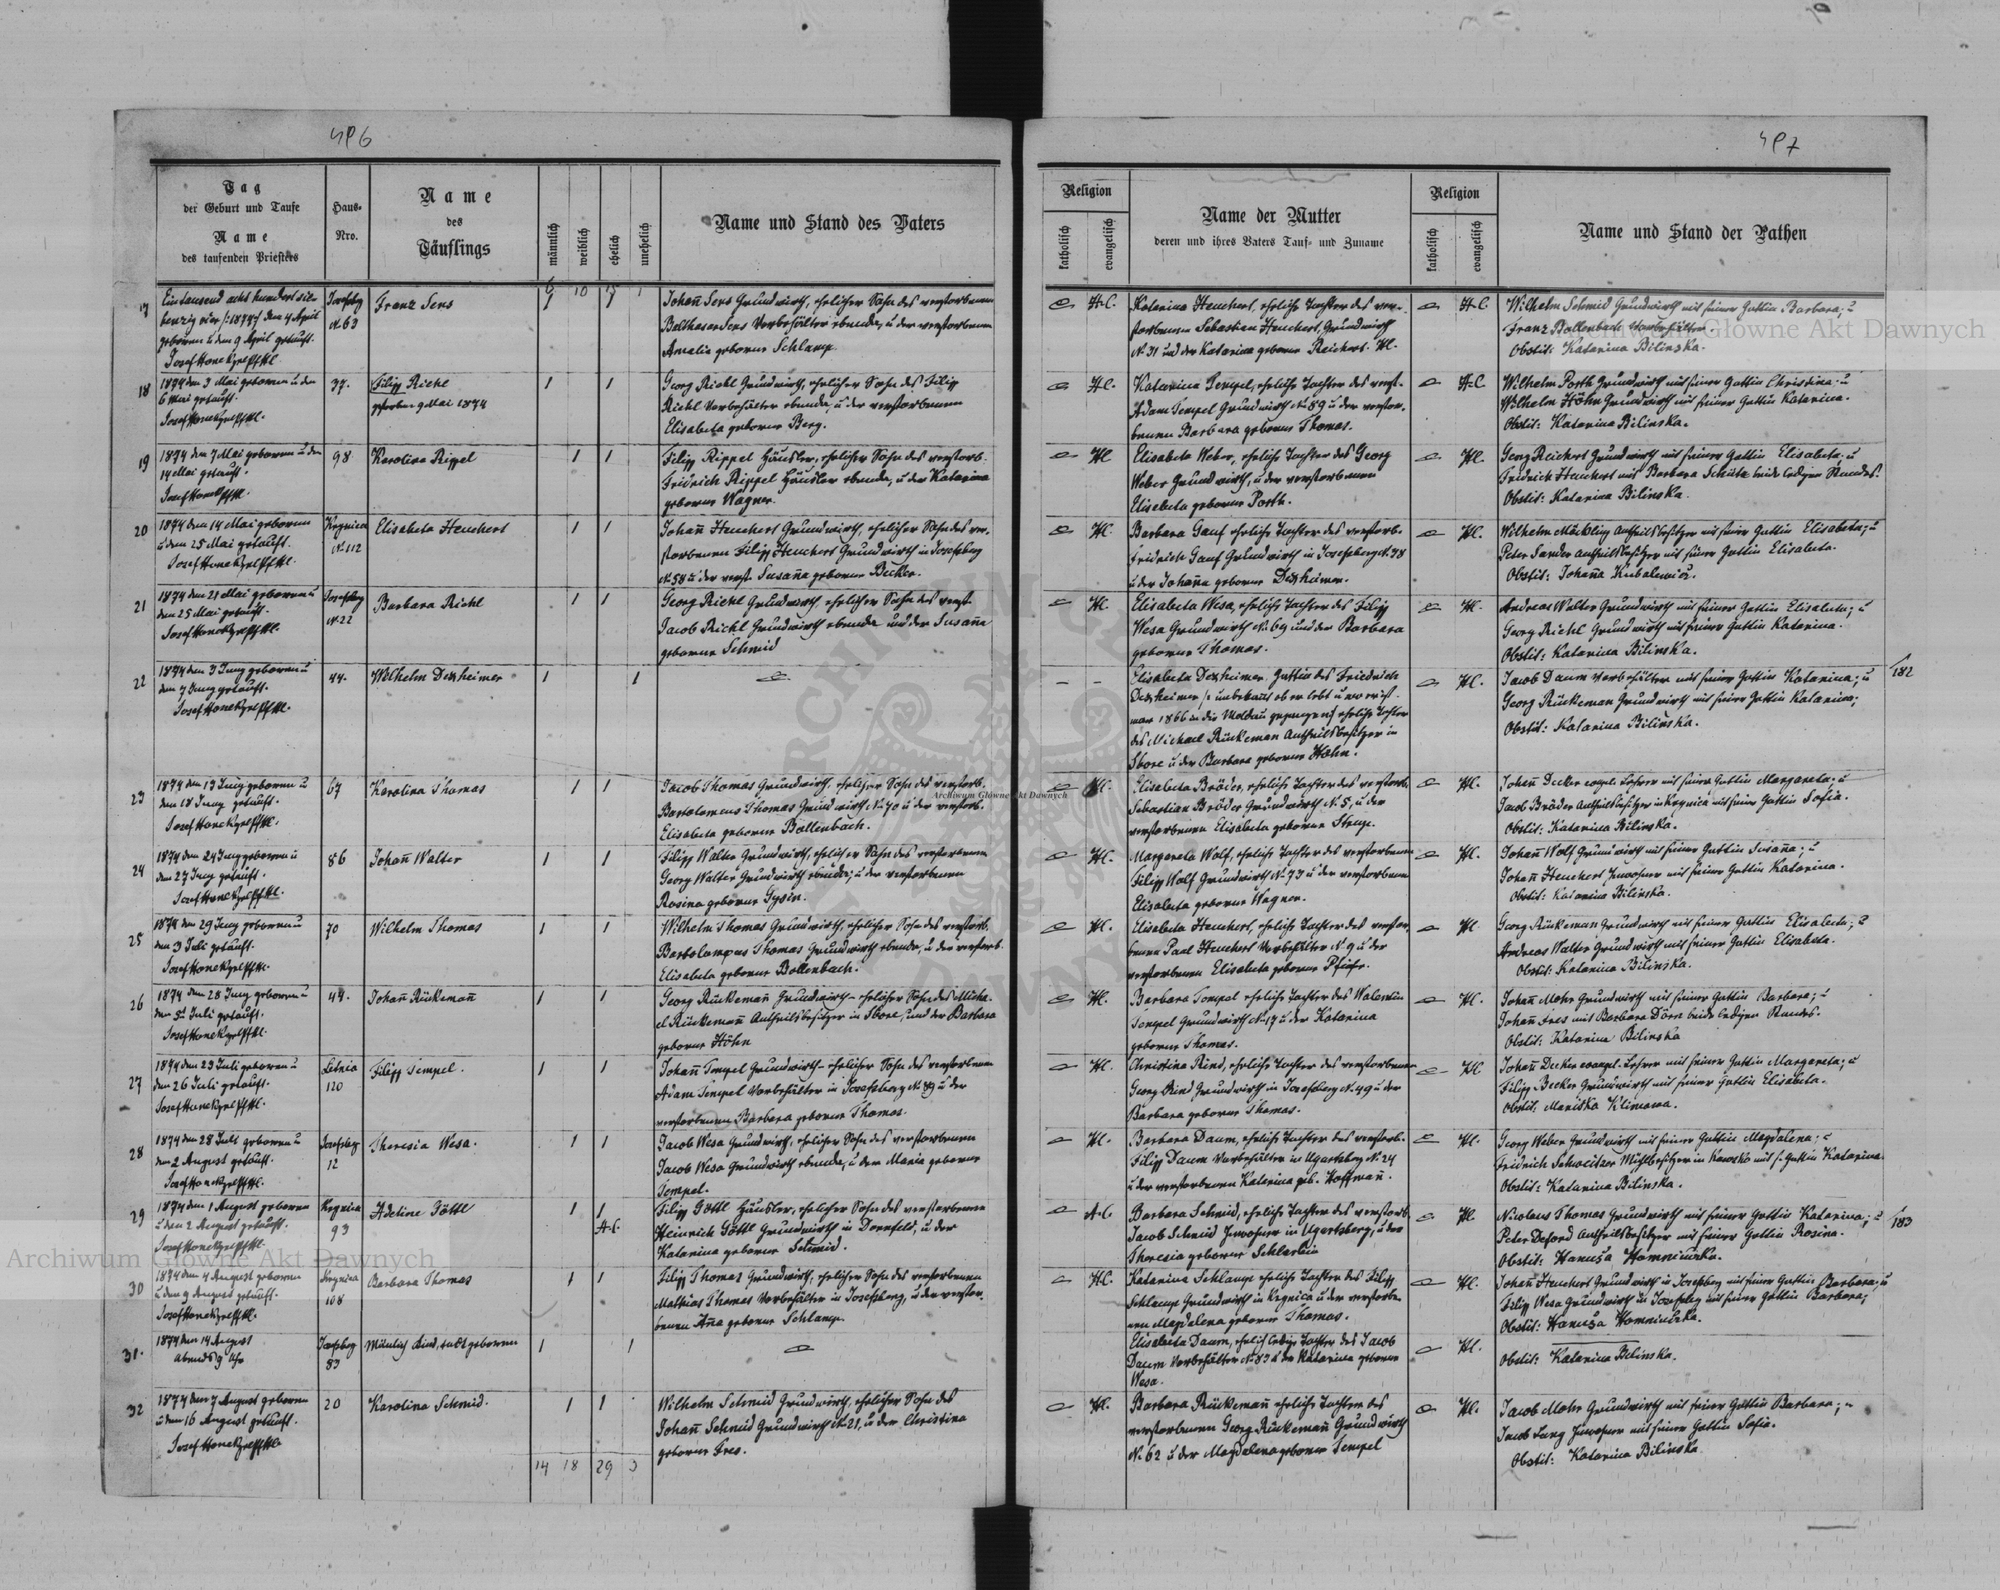 496
497
Tag
der Geburt und Taufe
Name
des taufenden Priesters
Haus-
Nro.
Name
des
Täuflings
männlich
weiblich
ehelich
unehelich
Name und Stand des Vaters
Religion
katholisch
evangelisch
Name der Mutter
deren und ihres Vaters Tauf- und Zuname
Religion
katholisch
evangelisch
Name und Stand der Pathen
6 10 15 1
17
Eintausend acht hundert sie-
benzig vier /:1874/ den 4 April
geboren u den 9 April getauft.
Josefsbg
N. 63
Franz Sens
1 1
Johañ Sens Grundwirth, ehelicher Sohn des verstorbenen
Balthasar Sens Vorbehälter ebenda, u der verstorbenen
Amalia geborne Schlamp.
H.C.
Katarina Heuchert, eheliche Tochter des ver-
storbenen Sebastian Heuchert, Grundwirth
N. 31 und der Katarina geborne Reichert. H.C.
H.C.
Wilhelm Schmid Grundwirth mit seiner Gattin Barbara; u
Franz Bollenbach Vorbehälter.
Obstit: Katarina Bilinska.
18
1874 den 3 Mai geboren u den
6 Mai getauft.
37.
Filipp Riehl
gestorben 9 Mai 1874
1 1
Georg Riehl Grundwirth, ehelicher Sohn des Filipp
Riehl Vorbehälter ebenda, u der verstorbenen
Elisabeta geborne Berg.
H.C.
Katarina Tempel, eheliche Tochter des verst-
Adam Tempel Grundwirth N. 89 u der verstor-
benen Barbara geborne Thomas.
H.C.
Wilhelm Porth Grundwirth mit seiner Gattin Christina u
Wilhelm Höhn Grundwirth mit seiner Gattin Katarina.
Obstit: Katarina Bilinska.
19
1874 den 7 Mai geboren u den
14 Mai getauft.
98
Karolina Rippel
1 1
Filipp Rippel Häusler, ehelicher Sohn des verstorb.
Fridrich Rippel Häusler ebenda, u der Katarina
geborne Wagner.
H.C.
Elisabeta Weber, eheliche Tochter des Georg
Weber Grundwirth, u der verstorbenen
Elisabeta geborne Porth.
H.C.
Georg Reichert Grundwirth mit seiner Gattin Elisabeta; u
Fridrich Heuchert mit Barbara Schütz beide ledigen Standes.
Obstit: Katarina Bilinska.
20
1874 den 14 Mai geboren
u den 25 Mai getauft.
Krynica
N. 112
Elisabeta Heuchert
1 1
Johañ Heuchert Grundwirth, ehelicher Sohn des ver-
storbenen Filipp Heuchert Grundwirth in Josefsberg
N. 58 u der verst. Susaña geborne Becker.
H.C.
Barbara Gauf eheliche Tochter des verstorb.
Fridrich Gauf Grundwirth in Josefsberg N. 38
u der Johaña geborne Dexheimer.
H.C.
Wilhelm Möcklin Antheilsbesitzer mit seiner Gattin Elisabeta; u
Peter Sander Antheilsbesitzer mit seiner Gattin Elisabeta.
Obstit: Johaña Kubalewicz.
21
1874 den 21 Mai geboren u
den 25 Mai getauft.
Josefsberg
N. 22
Barbara Riehl
1 1
Georg Riehl Grundwirth, ehelicher Sohn des verst.
Jacob Riehl Grundwirth ebenda und der Susaña
geborne Schmid
H.C.
Elisabeta Wesa, eheliche Tochter des Filipp
Wesa Grundwirth N. 69 und der Barbara
geborne Thomas.
H.C.
Andreas Walter Grundwirth mit seiner Gattin Elisabeta; u
Georg Riehl Grundwirth mit seiner Gattin Katarina.
Obstit: Katarina Bilinska.
22
1874 den 3 Juny geboren u
den 7 Juny getauft.
44.
Wilhelm Dexheimer
1 1
Elisabeta Dexheimer Gattin des Friedrich
Dexheimer /: unbekañt ob er lebt u wo er ist.
war 1866 in die Moldau gegangen/ eheliche Tochter
des Michael Rückeman Antheilsbesitzer in
Sbore u der Barbara geborne Höhn.
H.C.
Jacob Daum Vorbehälter mit seiner Gattin Katarina; u
Georg Rückeman Grundwirth mit seiner Gattin Katarina;
Obstit: Katarina Bilinska.
182
23
1874 den 13 Juny geboren u
den 18 Juny getauft.
67
Karolina Thomas
1 1
Jacob Thomas Grundwirth, ehelicher Sohn des verstorb.
Bartolomeus Thomas Grundwirth N. 70 u der verstorb.
Elisabeta geborne Bollenbach.
H.C.
Elisabeta Bröder, eheliche Tochter des verstorb.
Sebastian Bröder Grundwirth N. 5, u der
verstorbenen Elisabeta geborne Stenzel.
H.C.
Johañ Decker evangl. Lehrer mit seiner Gattin Margareta u
Jacob Bröder Antheilsbesitzer in Krynica mit seiner Gattin Sofia.
Obstit: Katarina Bilinska.
24
1874 den 24 Juny geboren u
den 27 Juny getauft.
86
Johañ Walter
1 1
Filipp Walter Grundwirth, ehelicher Sohn des verstorbenen
Georg Walter Grundwirth ebenda; u der verstorbenen
Rosina geborne Gysin.
H.C.
Margareta Wolf, eheliche Tochter des verstorbenen
Filipp Wolf Grundwirth N. 73 u der verstorbenen
Elisabeta geborne Wagner.
H.C.
Johañ Wolf Grundwirth mit seiner Gattin Susaña; u
Johañ Heuchert Inwohner mit seiner Gattin Katarina.
Obstit: Katarina Bilinska.
25
1874 den 29 Juny geboren u
den 3 Juli getauft.
70
Wilhelm Thomas
1 1
Wilhelm Thomas Grundwirth, ehelicher Sohn des verstorb.
Bartolomeus Thomas Grundwirth ebenda, u der verstorb.
Elisabeta geborne Bollenbach.
H.C.
Elisabeta Heuchert, eheliche Tochter des verstor-
benen Paul Heuchert Vorbehälter N. 9 u der
verstorbenen Elisabeta geborne Pfeifer.
H.C.
Georg Rückeman Grundwirth mit seiner Gattin Elisabeta; u
Andreas Walter Grundwirth mit seiner Gattin Elisabeta.
Obstit: Katarina Bilinska.
26
1874 den 28 Juny geboren u
den 5 Juli getauft.
44.
Johañ Rückemañ
1 1
Georg Rückemañ Grundwirth - ehelicher Sohn des Micha-
el Rückemañ Antheilsbesitzer in Sbore, und der Barbara
geborne Höhn
H.C.
Barbara Tempel eheliche Tochter des Walentin
Tempel Grundwirth N. 17 u der Katarina
geborne Thomas.
H.C.
Johañ Mohr Grundwirth mit seiner Gattin Barbara; u
Johañ Fres mit Barbara Dörr beide ledigen Standes.
Obstit: Katarina Bilinska
27
1874 den 23 Juli geboren u
den 26 Juli getauft.
Letnia
120
Filipp Tempel.
1 1
Johañ Tempel Grundwirth - ehelicher Sohn des verstorbenen
Adam Tempel Vorbehälter in Josefsberg N. 89 u der
verstorbenen Barbara geborne Thomas.
H.C.
Christina Rind, eheliche Tochter des verstorbenen
Georg Rind Grundwirth in Josefsberg N. 49 u der
Barbara geborne Thomas.
H.C.
Johañ Decker evangel. Lehrer mit seiner Gattin Margareta; u
Filipp Becker Grundwirth mit seiner Gattin Elisabeta.
Obstit. Maniska Klimowa.
28
1874 den 28 Juli geboren u
den 2 August getauft.
Josefsberg
12
Theresia Wesa.
1 1
Jacob Wesa Grundwirth, ehelicher Sohn des verstorbenen
Jacob Wesa Grundwirth ebenda, u der Maria geborne
Tempel.
H.C.
Barbara Daum, eheliche Tochter des verstorb.
Filipp Daum Vorbehälter in Ugartsberg N. 24
u der verstorbenen Katarina geb. Hoffmañ.
H.C.
Georg Weber Grundwirth mit seiner Gattin Magdalena; u
Fridrich Schweitzer Mühlbesitzer in Kawsko mit s. Gattin Katarina.
Obstit: Katarina Bilinska.
29
1874 den 1 August geboren
u den 2 August getauft.
Krynica
93
Adeline Göttl
1 1
A.C.
Filipp Göttl Häusler, ehelicher Sohn des verstorbenen
Heinrich Göttl Grundwirth in Dornfeld, u der
Katarina geborne Schmid.
A.C.
Barbara Schmid, eheliche Tochter des verstorb.
Jacob Schmid Inwohner in Ugartsberg, u der
Theresia geborne Schlerbin
H.C.
Nicolaus Thomas Grundwirth mit seiner Gattin Katarina; u
Peter Deford Antheilsbesitzer mit seiner Gattin Rosina.
Obstit: Hanusza Homniczka.
183
30
1874 den 4 August geboren
u den 9 August getauft.
Krynica
108
Barbara Thomas
1 1
Filipp Thomas Grundwirth, ehelicher Sohn des verstorbenen
Mathias Thomas Vorbehälter in Josefsberg, u der verstor-
benen Aña geborne Schlamp.
H.C.
Katarina Schlamp eheliche Tochter des Filipp
Schlamp Grundwirth in Krynica u der verstorbe-
nen Magdalena geborne Thomas.
H.C.
Johañ Heuchert Grundwirth in Josefsberg mit seiner Gattin Barbara; u
Filipp Wesa Grundwirth in Josefsberg mit seiner Gattin Barbara;
Obstit: Hanusza Homniczka.
31.
1874 den 14 August
Abends 9 Uhr
Josefsberg
83
Mänlich Kind, todt geboren
1 1
Elisabeta Daum, ehelich ledige Tochter des Jacob
Daum Vorbehälter N. 83 u der Katarina geborne
Wesa.
H.C.
Obstit: Katarina Bilinska.
32
1874 den 7 August geboren
u den 16 August getauft.
20
Karolina Schmid.
1 1
Wilhelm Schmid Grundwirth, ehelicher Sohn des
Johañ Schmid Grundwirth N. 21, u der Christina
geborne Fres.
H.C.
Barbara Rückemañ eheliche Tochter des
verstorbenen Georg Rückemañ Grundwirth
N. 62 u der Magdalena geborne Tempel
H.C.
Jacob Mohr Grundwirth mit seiner Gattin Barbara; u
Jacob Lang Inwohner mit seiner Gattin Sofia.
Obstit: Katarina Bilinska
14 18 29 3
Archiwum Główne Akt Dawnych
Archiwum Główne Akt Dawnych
Archiwum Główne Akt Dawnych